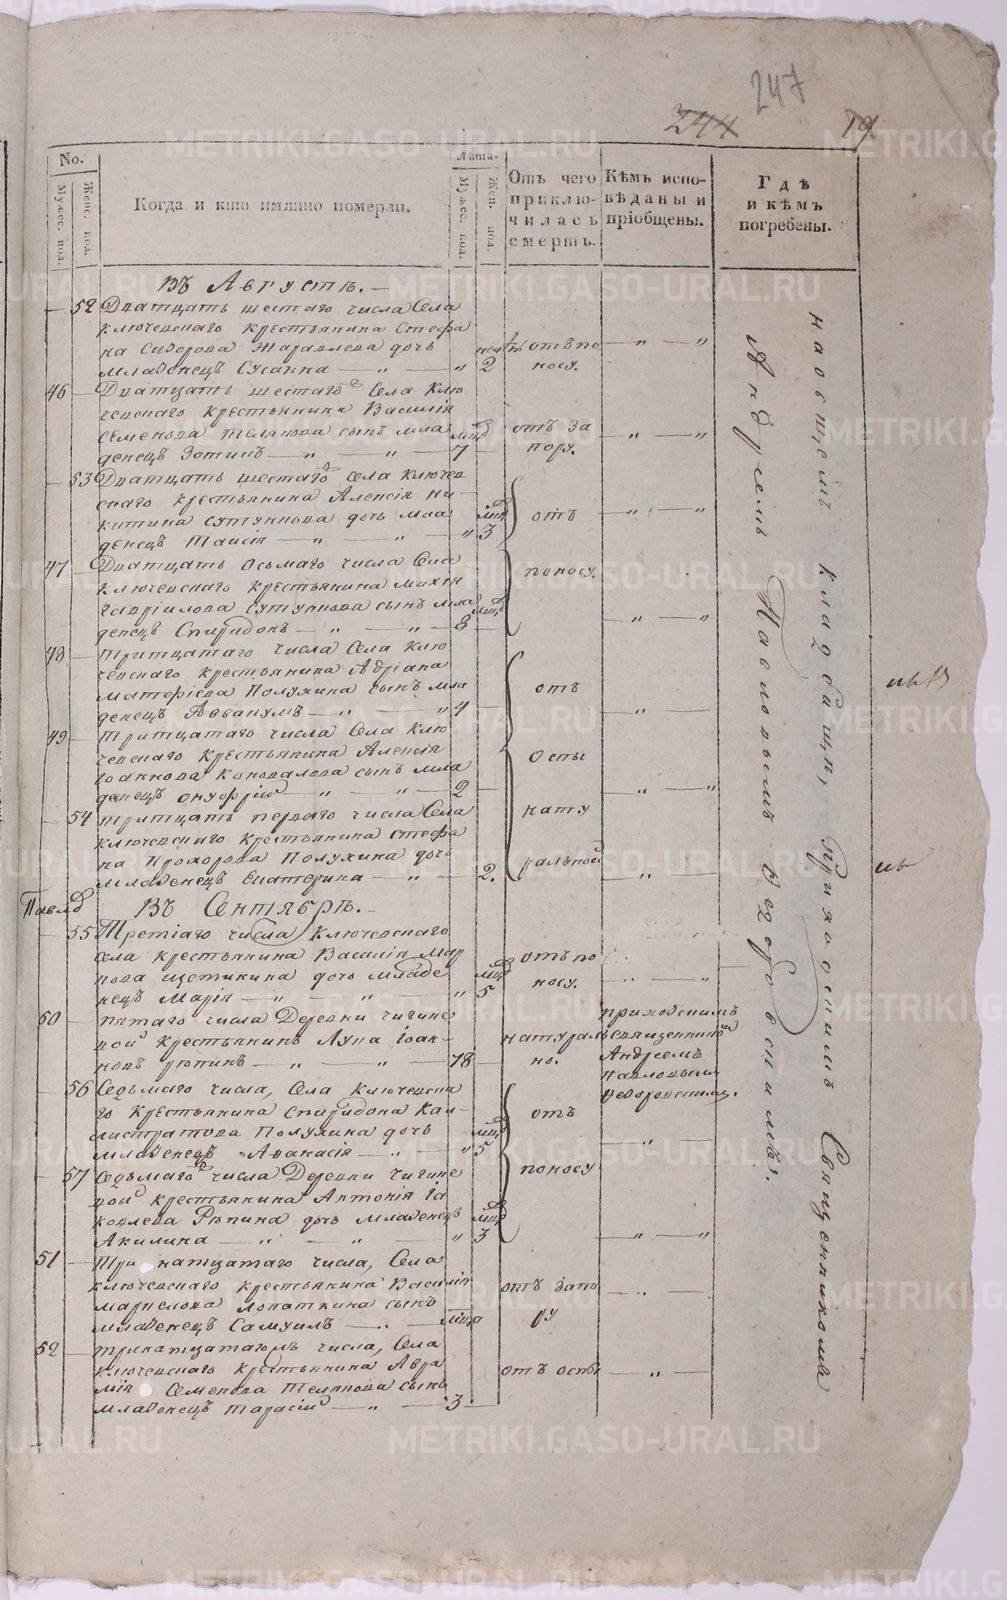 247
244
19
No.
Лѣта.
Мужес. пол.
Женс. пол.
Когда и кто имянно померли.
Мужес. пол.
Жен. пол.
Отъ чего
приклю-
чилась
смерть.
Кѣмъ испо-
вѣданы и
пріобщены.
Гдѣ
и кѣмъ
погребены.
Въ Августѣ.
52 Дватцать шестаго числа Села
Ключевскаго крестьянина Стефа
на Сидорова Журавлева дочь
младенецъ Сусанна 2 отъ по
носу.
46 Дватцать шестаго Села Клю
чевскаго крестьянина Василія
Семенова сынъ мла
денецъ Зотикъ 7 отъ за
пору.
53 Дватцать шестаго села Ключев
скаго крестьянина Алексія Ни
китина Сутункова дочь мла
денецъ Таисія 3
отъ
поносу.
47 Дватцать осьмаго числа Села
Ключевскаго крестьянина
Гавріилова Сутункова сынъ мла
денецъ Спиридонъ 8
48 Тритцатаго числа Села Клю
чевскаго крестьянина Адріана
Матфіева Полухина сынъ мла
денецъ Аввакумъ 4
49 Тритцатаго числа Села Клю
чевскаго крестьянина Алексія
Іоаннова Коновалова сынъ мла
денецъ Онуфрій 2
54 Тритцать перваго числа Села
Ключевскаго крестьянина Стефа
на Прохорова Полухина дочь
младенецъ Екатерина 2.
отъ
оспы
нату
ральной
Въ Сентябрѣ.
55 Третіаго числа Ключевскаго
села крестьянина Василія Мар
кова Щетинина дочь младе
нецъ Марія 5 отъ по
носу.
50 Пятаго числа Деревни Чигине
вой крестьянинъ Лука Іоан
новъ 78 натураль
но.
приходскимъ
священникомъ
Андреемъ
Павловымъ
Ѳедоровскимъ.
56 Седьмаго числа, Села Ключевска
го крестьянина Спиридона Кал
листратова Полухина дочь
младенецъ Аѳанасія 5
57 Седьмаго числа Деревни Чигине
вой крестьянина Антонія Іа
ковлева Рѣпина дочь младенецъ
Акилина 3
отъ
поносу
51 Три натцатаго числа, Села
Ключевскаго крестьянина Василія
Маркелова Лопаткина сынъ
младенецъ Самуилъ отъ запо
ру
52 Тринатцатаго числа, Села
Ключевскаго крестьянина Авра
мія Семенова сынъ
младенецъ Тарасій 3 отъ оспы
на общемъ кладбищи, приходскимъ Священникомъ
Андреемъ Павловымъ Ѳедоровскимъ.
METRIKI.GASO-URAL.RU